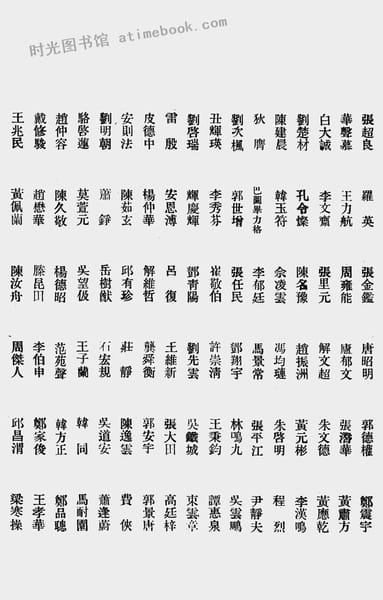 时光图书馆 atimebook.com
張超良 羅英 張金鑑 唐昭明 郭德權 鄭震宇
華聲慕 王力航 周雍能 唐郁文 張潛華 黃肅方
白大誠 李文齋 張里元 解文超 朱文德 黃應乾
劉楚材 孔令燦 陳名豫 趙振洲 黃元彬 李漢鳴
陳建晨 韓玉符 余凌雲 馮均璉 朱啓明 程烈
狄膺 巴圖畢力格 李郁廷 馬景常 張平江 尹靜夫
劉次楓 郭世增 張任民 鄧翔宇 林鳴九 吳雲鵬
丑輝瑛 李秀芬 崔敬伯 許崇清 王秉鈞 譚惠泉
劉啓瑞 輝慶輝 鄧青陽 劉先雲 吳鑄城 束雲章
雷殷 安恩溥 呂復 王維新 張大田 高廷梓
皮德中 楊仲華 解維哲 龔舜衡 郭安宇 郭景唐
安則法 陳茹玄 邱有珍 莊靜 陳逸雲 費俠
劉明朝 蕭錚 岳樹猷 石宏規 吳道安 蕭逢蔚
駱啓蓮 莫萱元 吳望伋 王子蘭 韓同 馬耐園
趙仲容 陳久敬 楊德昭 范苑聲 韓方正 鄭品聰
戴修駿 趙懋華 滕昆田 李伯申 鄭家俊 王孝華
王兆民 黃佩蘭 陳汝舟 周傑人 邱昌渭 梁寒操